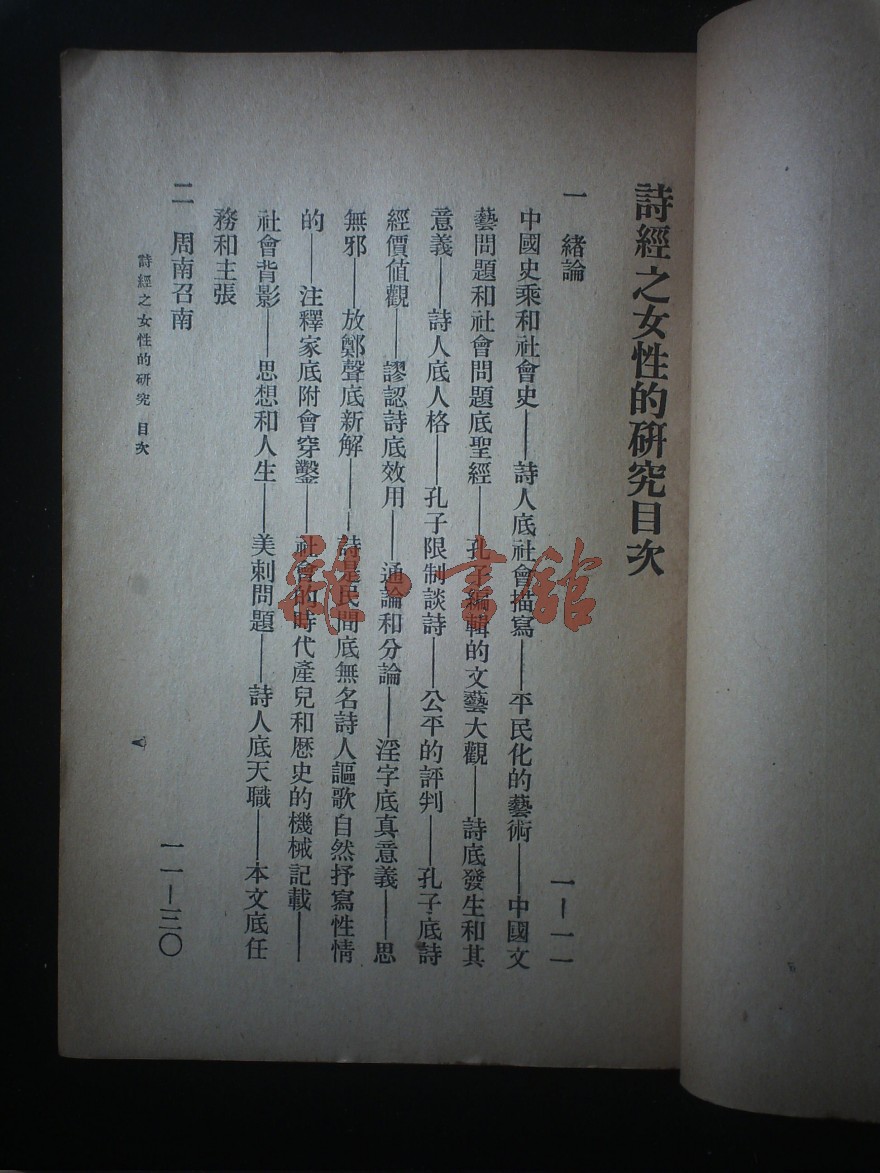 詩經之女性的研究目次
一 緒論
一—一一
中國史乘和社會史——詩人底社會描寫——平民化的藝術——中國文
藝問題和社會問題底聖經——孔子編輯的文藝大觀——詩底發生和其
意義——詩人底人格——孔子限制談詩——公平的評判——孔子底詩
經價值觀——謬認詩底效用——通論和分論——淫字底真意義——思
無邪——放鄭聲底新解——詩是民間底無名詩人謳歌自然抒寫性情
的——注釋家底附會穿鑿——社會的時代產兒和歷史的機械記載——
社會背影——思想和人生——美刺問題——詩人底天職——本文底任
務和主張
二 周南召南
一一—三〇
詩經之女性的研究 目次
雜·書館